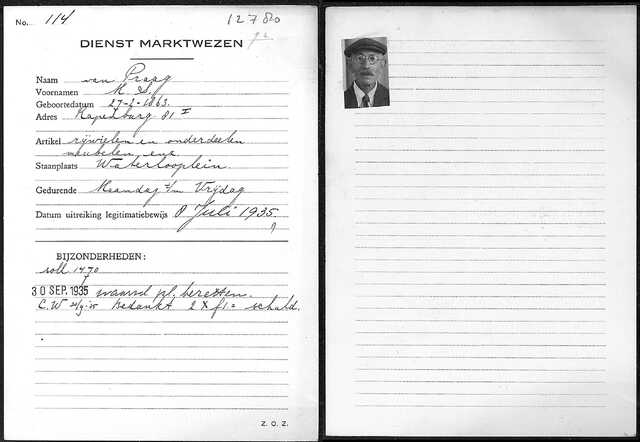 No. 114
12780
DIENST MARKTWEZEN
Naam van Praag
Voornamen M S.
Geboortedatum 27-2-1863.
Adres Rapenburg 81 I
Artikel rijwielen en onderdeelen
meubelen, enz
Staanplaats Waterlooplein.
Gedurende Maandag t/m Vrijdag
Datum uitreiking legitimatiebewijs 8 Juli 1935
BIJZONDERHEDEN:
soll 1470
30 SEP. 1935 pl. beretten.
C.W Bedankt 2 X f1= schuld.
Z. O. Z.